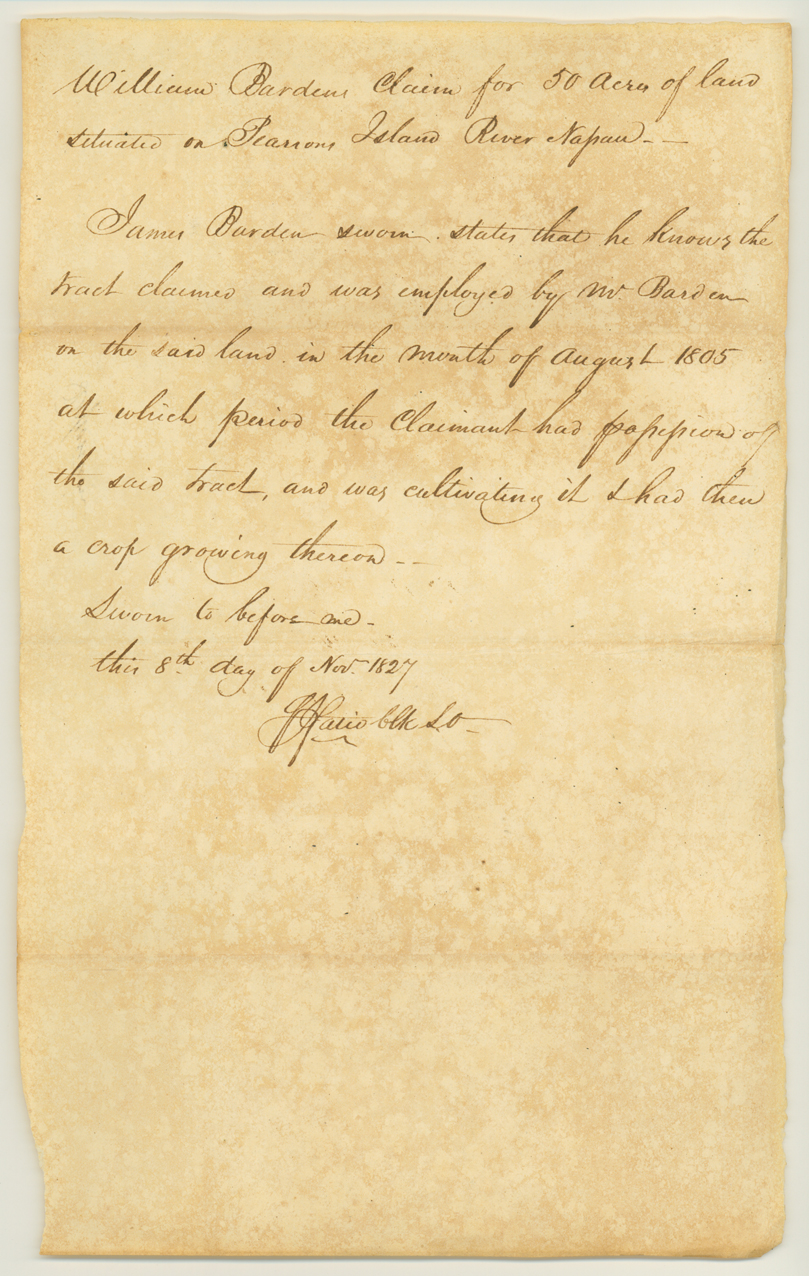 William Bardens Claim for 50 Acres of land
situated on Pearsons Island River Nassau - -
James Barden sworn. states that he knows the
tract claimed and was employed by Mr. Barden
on the said land in the month of August 1805
at which period the Claimant had possession of
the said tract, and was cultivating it & had then
a crop growing thereon - -
Sworn to before me -
this 8th. day of Nov. 1827
Fatio Clk